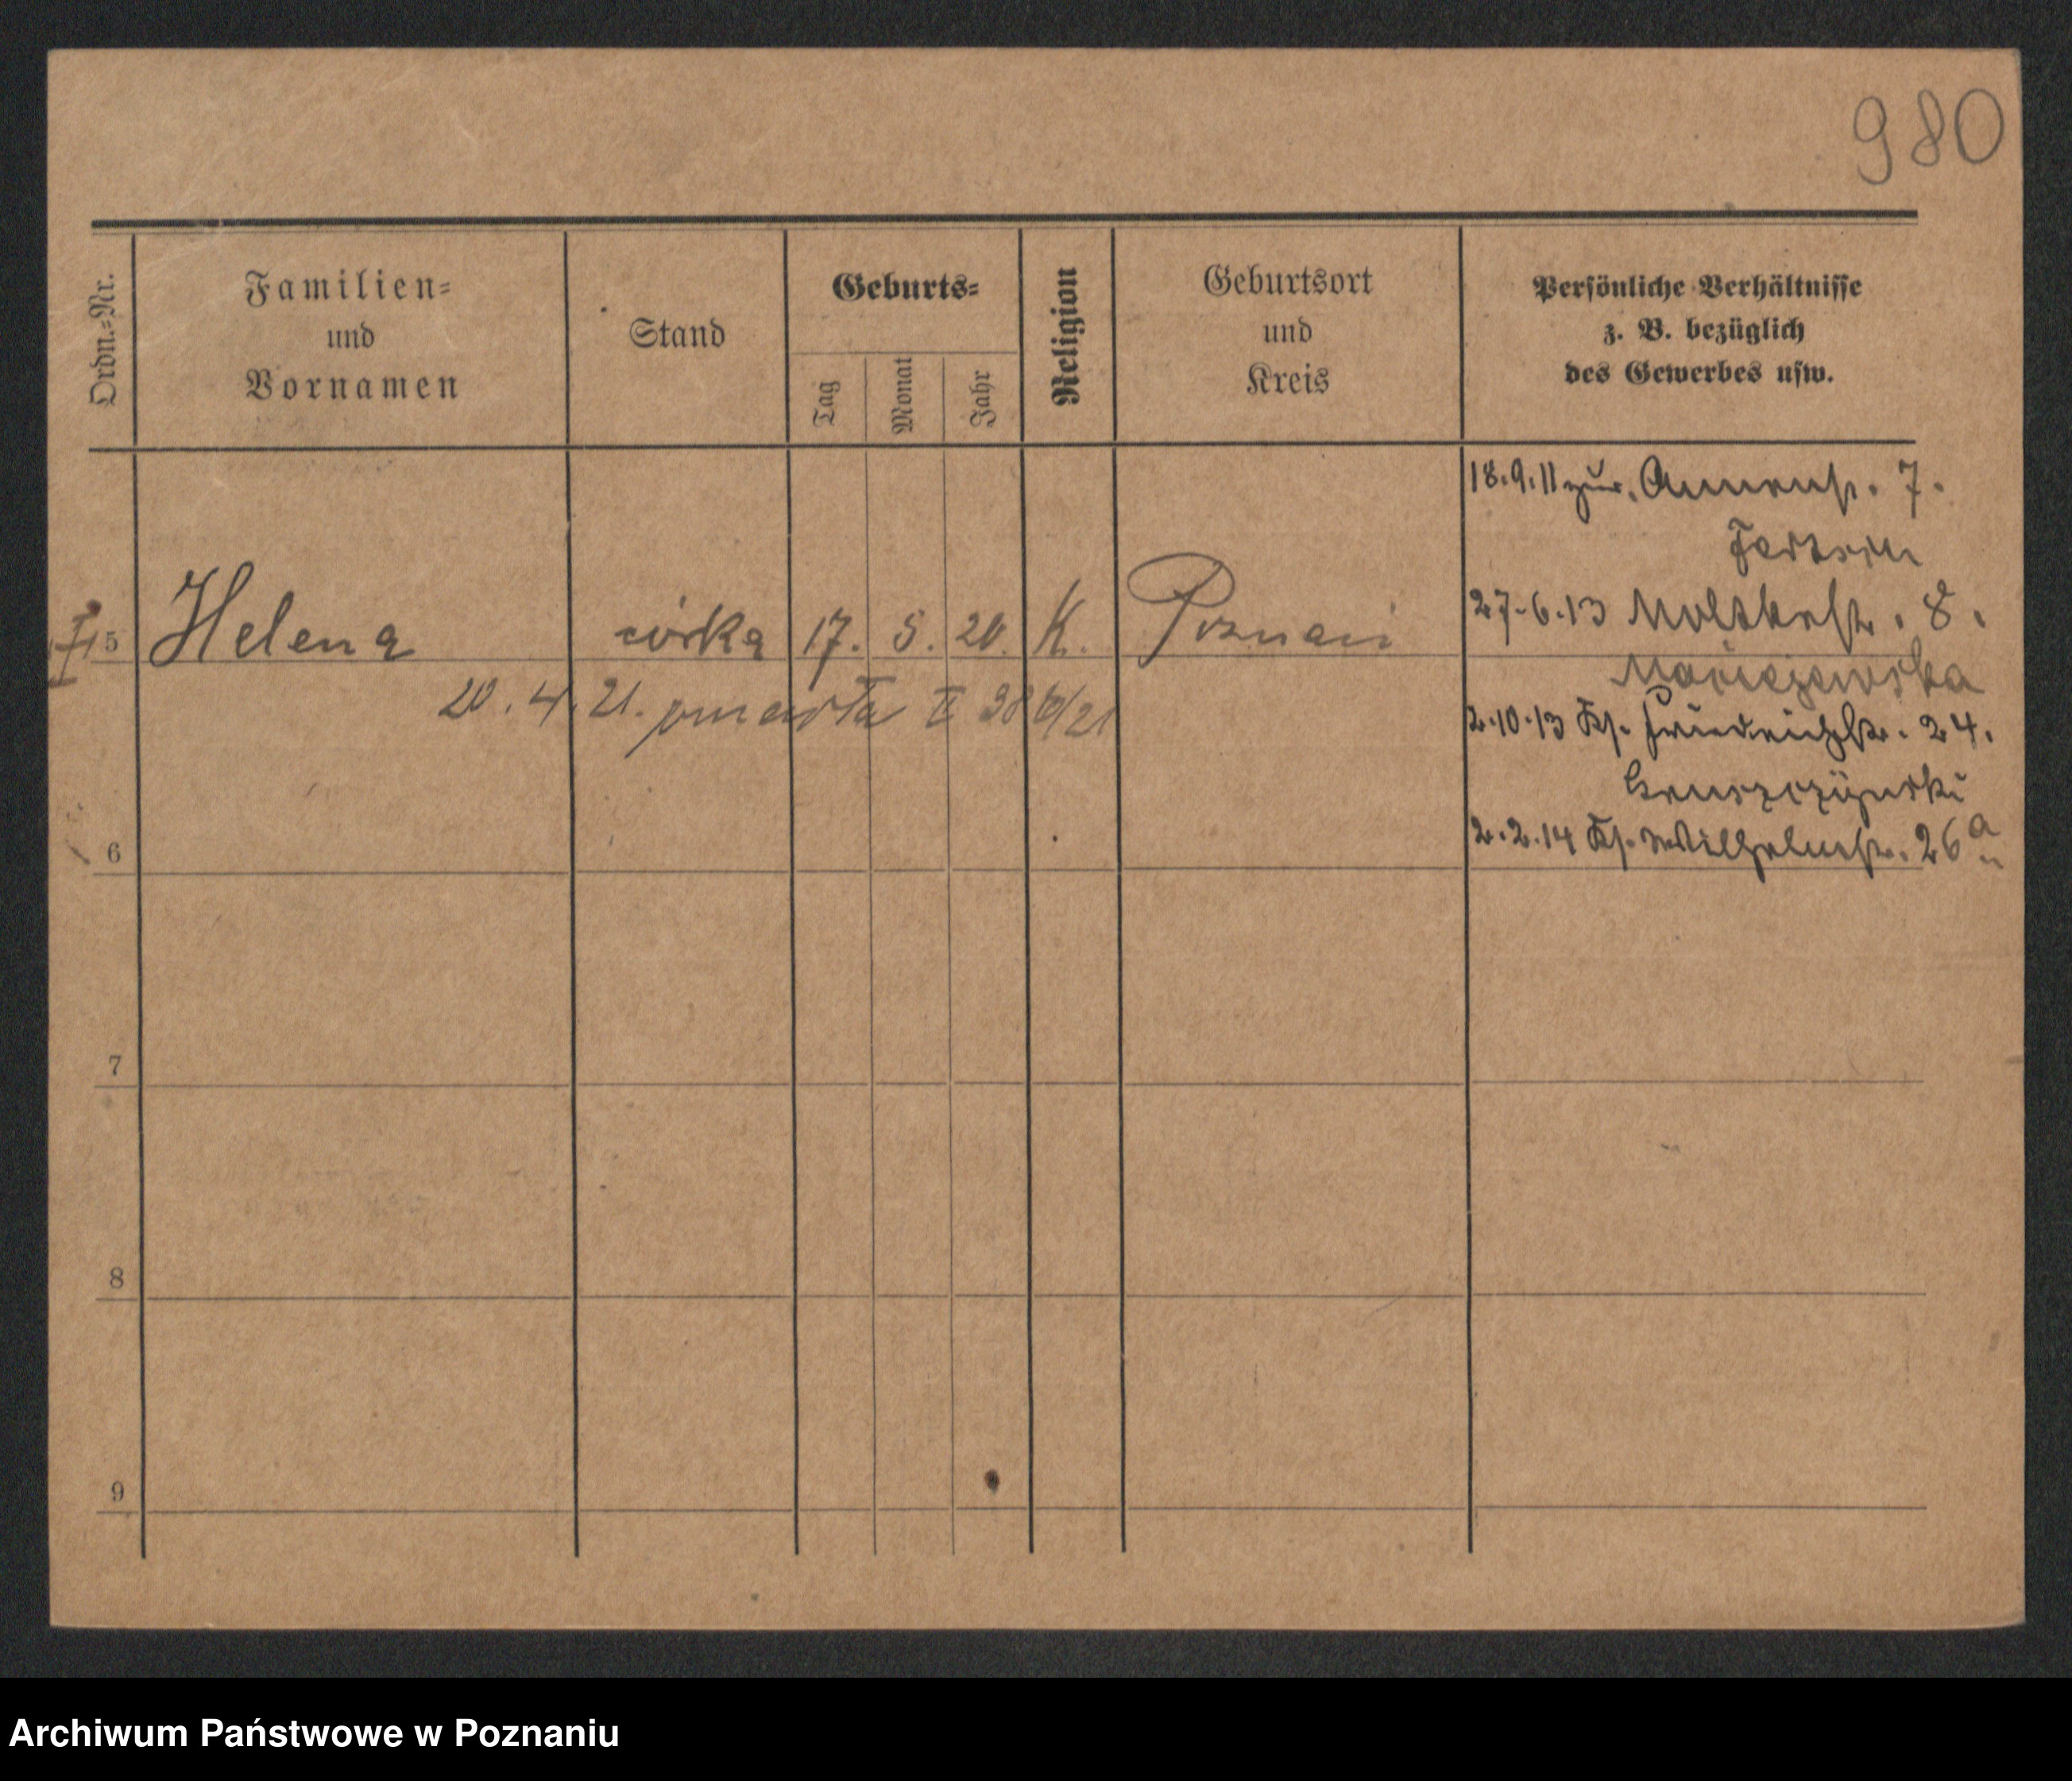 980
Ordn.-Nr.
Familien-
und
Vornamen
Stand
Geburts-
Tag
Monat
Jahr
Religion
Geburtsort
und
Kreis
Persönliche Verhältnisse
z. B. bezüglich
des Gewerbes usw.
18.9.11 zur. Annenstr. 7.
27.6.13 Moltkestr. 8.
5 Helena córka 17. 5. 20. K. Poznań
Maciejewska
20.4.21. zmarła II 98
2.10.13 Kj. Friedrichstr. 24.
6
2.2.14 Kj. Wilhelmstr. 26a
7
8
9
Archiwum Państwowe w Poznaniu